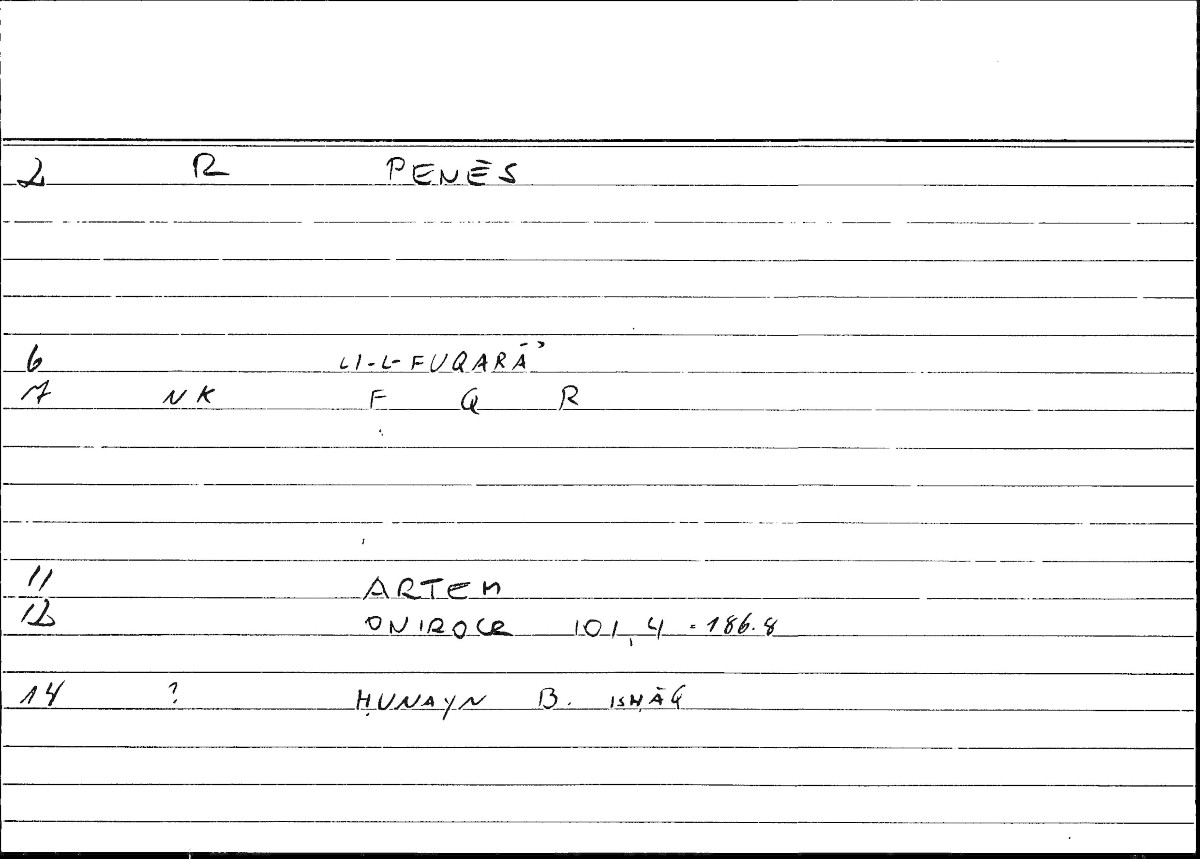 2 R PENĒS
6 LI-L-FUQARĀʾ
7 NK F Q R
11 ARTEM
12 ONIROCR 101,4 = 186.8
14 ? ḤUNAYN B. ISḤĀQ